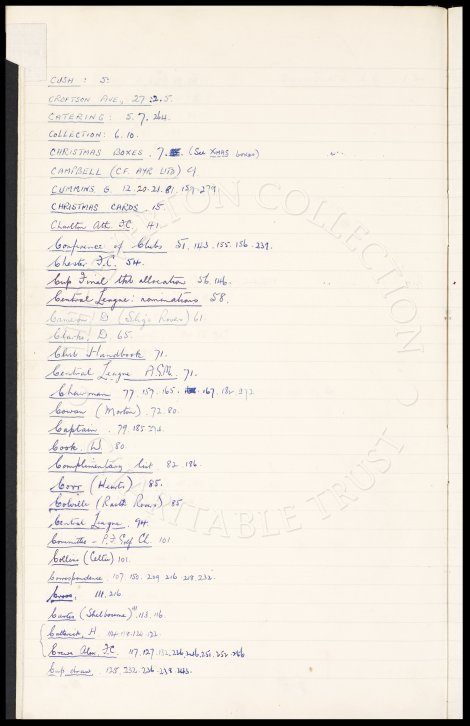 CUSH : 5.
CROFTSON AVE, 27:2.5.
CATERING : 5. 7. 264.
COLLECTION: 6.10.
CHRISTMAS BOXES. 7. (See XMAS boxes)
CAMPBELL (C.F. AYR UTD) 9
CUMMINS G. 12.20.21.81. 159.279.
CHRISTMAS CARDS. 15.
Charlton Ath. F.C. 41.
Conference of Clubs 51. 143.155.156.239.
Chester F.C. 54.
Cup Final tkt allocation 56. 146.
Central League: nominations 58.
Cameron D (Sligo Rovers) 61
Clarke, D. 65.
Club Handbook 71.
Central League A.G.M. 71.
Chairman 77. 157. 165. 167. 182. 272
Cowan (Morton). 72. 80.
Captain. 79. 185. 272.
Cook. W. 80
Complimentary list 82. 186.
Corr (Hearts) 85.
Colville (Raith Rovers) 85.
Central League. 94.
Committee - P.F. Golf Ch 101.
Collins (Celtic) 101.
Correspondence. 107. 150. 209. 216. 218. 232.
Cross. 111. 216.
Carter (Shelbourne) 111. 113. 116.
Catterick, H. 114.118.120.122.
Crewe Alex. F.C. 117. 127. 132. 236. 246. 251. 252. 256.
Cup draw. 125. 232. 236. 238. 243.
COLLECTION
CHARITABLE TRUST